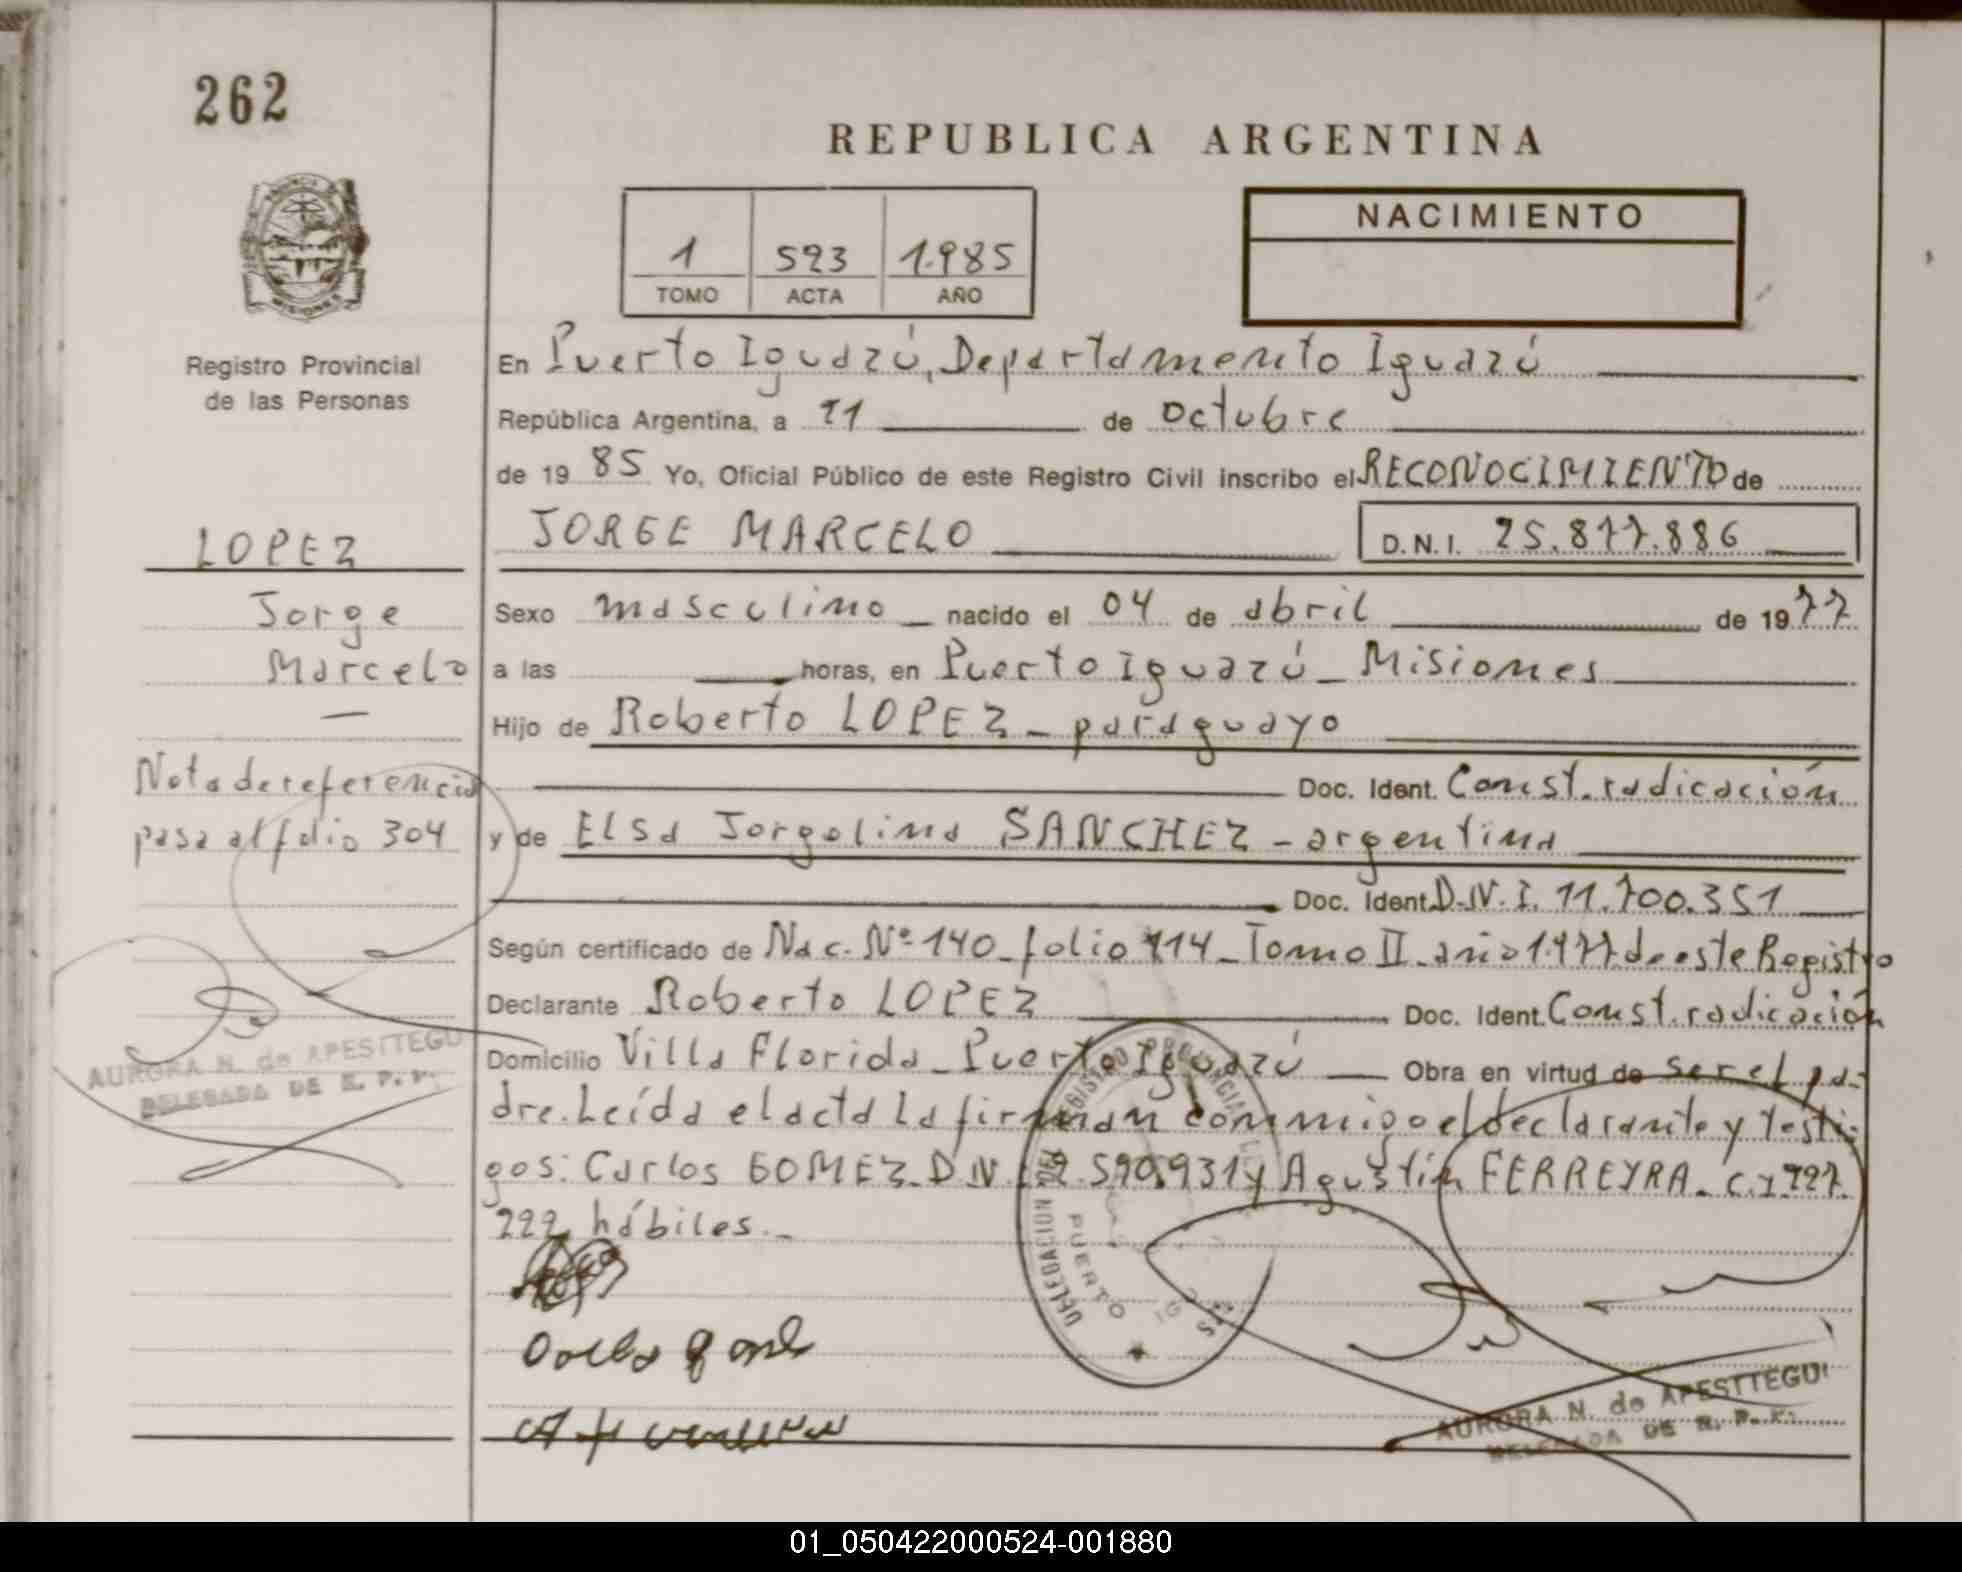 262
REPUBLICA ARGENTINA
1 523 1.985
TOMO ACTA AÑO
NACIMIENTO
Registro Provincial
de las Personas
LOPEZ
Jorge
Marcelo
Nota de referencia
pasa al folio 304
AURORA N. de APESTTEGUI
DELEGADA DE R. P. P.
En Puerto Iguazú, Departamento Iguazú
República Argentina, a 21 de octubre
de 19 85 Yo, Oficial Público de este Registro Civil inscribo el RECONOCIMIENTO de
JORGE MARCELO D.N.I. 25.877.886
Sexo masculino nacido el 04 de abril de 1977
a las horas, en Puerto Iguazú - Misiones
Hijo de Roberto LOPEZ - paraguayo
Doc. Ident. Const. radicación
y de Elsa Jorgelina SANCHEZ - argentina
Doc. Ident. D.N.I. 11.700.351
Según certificado de Nac. Nº 140 - folio 114 - Tomo II - año 1.977 de este Registro
Declarante Roberto LOPEZ Doc. Ident. Const. radicación
Domicilio Villa Florida - Puerto Iguazú Obra en virtud de ser el pa-
dre. Leída el acta la firman conmigo el declarante y testi-
gos: Carlos GOMEZ - D.N. 590.931 y Agustín FERREYRA - C.I. 227.
222, hábiles.-
DELEGACION DEL REGISTRO PROVINCIAL DE LAS
PUERTO
AURORA N. de APESTTEGUI
DELEGADA DE R. P. P.
01_050422000524-001880